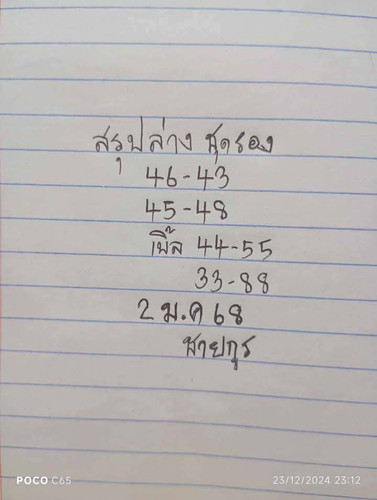 สรุปล่าง ชุดรอง
46-43
45-48
เบิ้ล 44-55
33-88
2 ม.ค 68
ชายกูร
POCO C65
23/12/2024 23:12